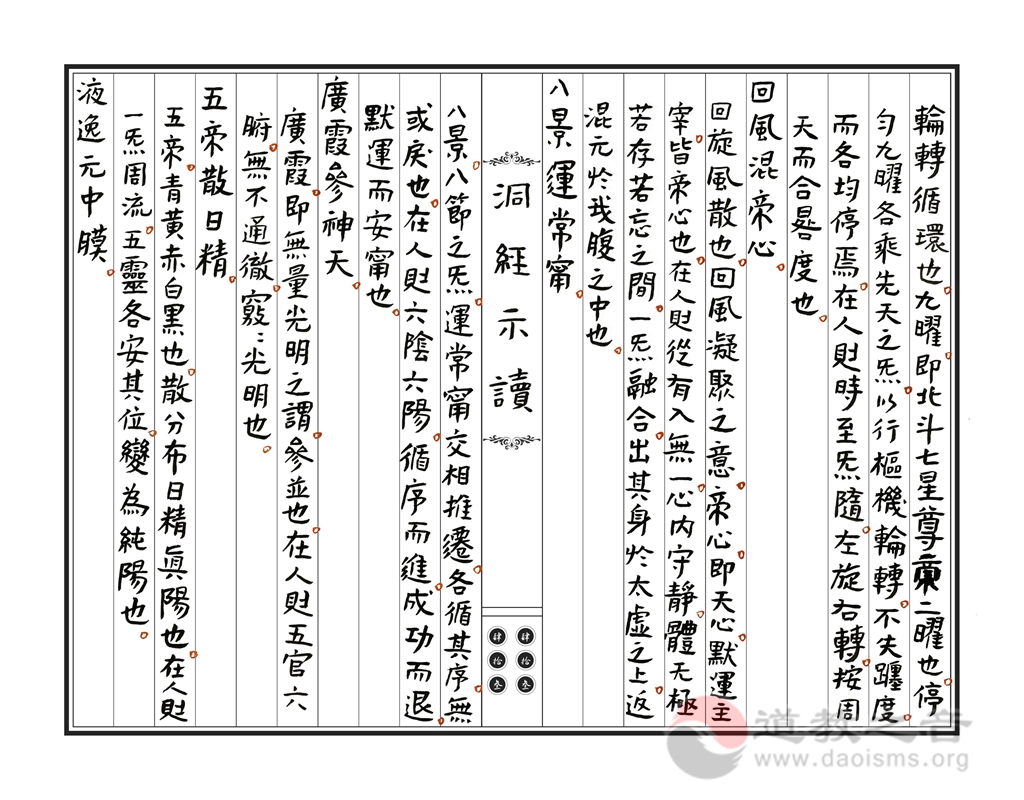 輪轉循環也九曜即北斗七星尊帝二曜也停
勻九曜各乘先天之炁以行樞機輪轉不失躔度
而各均停焉在人則時至炁隨左旋右轉按周
天而合晷度也
回風混帝心
回旋風散也回風凝聚之意帝心即天心默運主
宰皆帝心也在人則從有入無一心內守靜體无極
若存若忘之間一炁融合出其身於太虛之上返
混元於我腹之中也
八景運常甯
洞經示讀
肆拾叁
肆拾叁
八景八節之炁運常甯交相推遷各循其序無
或戾也在人則六陰六陽循序而進成功而退
默運而安甯也
廣霞參神天
廣霞即無量光明之謂參並也在人則五官六
腑無不通徹竅:光明也
五帝散日精
五帝青黃赤白黑也散分布日精眞陽也在人則
一炁周流五靈各安其位變為純陽也
液逸元中膜
道教之音
www.daoisms.org